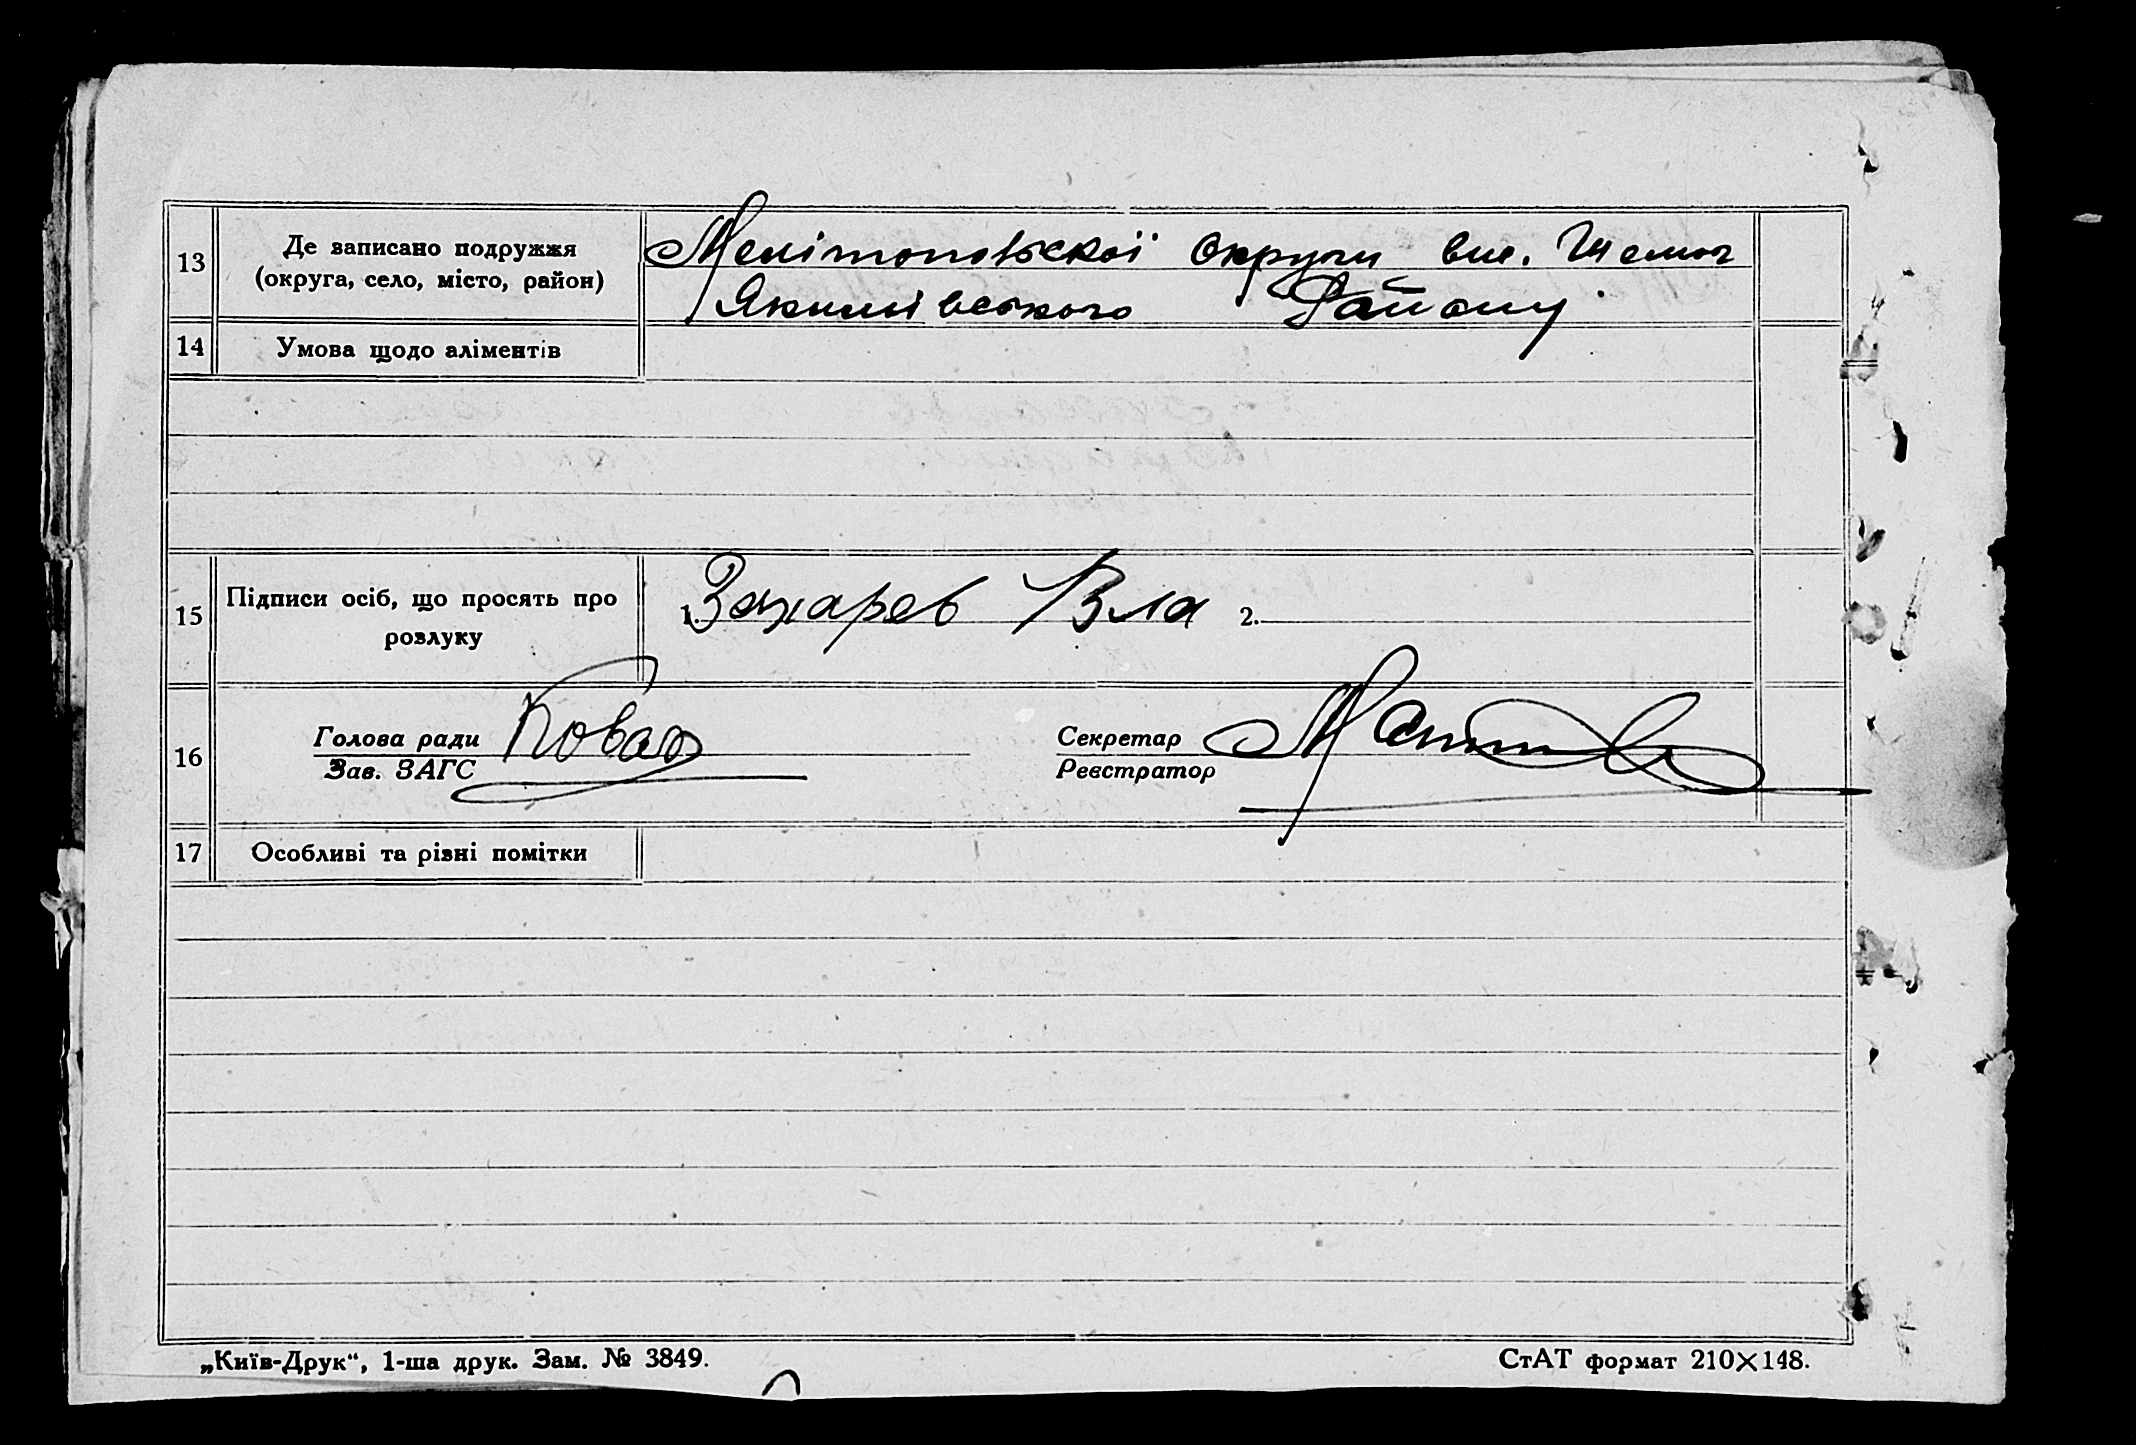 13
Де записано подружжя
(округа, село, місто, район)
Мелітопольскої округи
Якимівського Району
14
Умова щодо аліментів
15
Підписи осіб, що просять про
розлуку
1. Захарев Вла 2.
16
Голова ради
Зав. ЗАГС
Секретар
Реєстратор
17
Особливі та різні помітки
„Київ-Друк“, 1-ша друк. Зам. № 3849.
СтАТ формат 210×148.